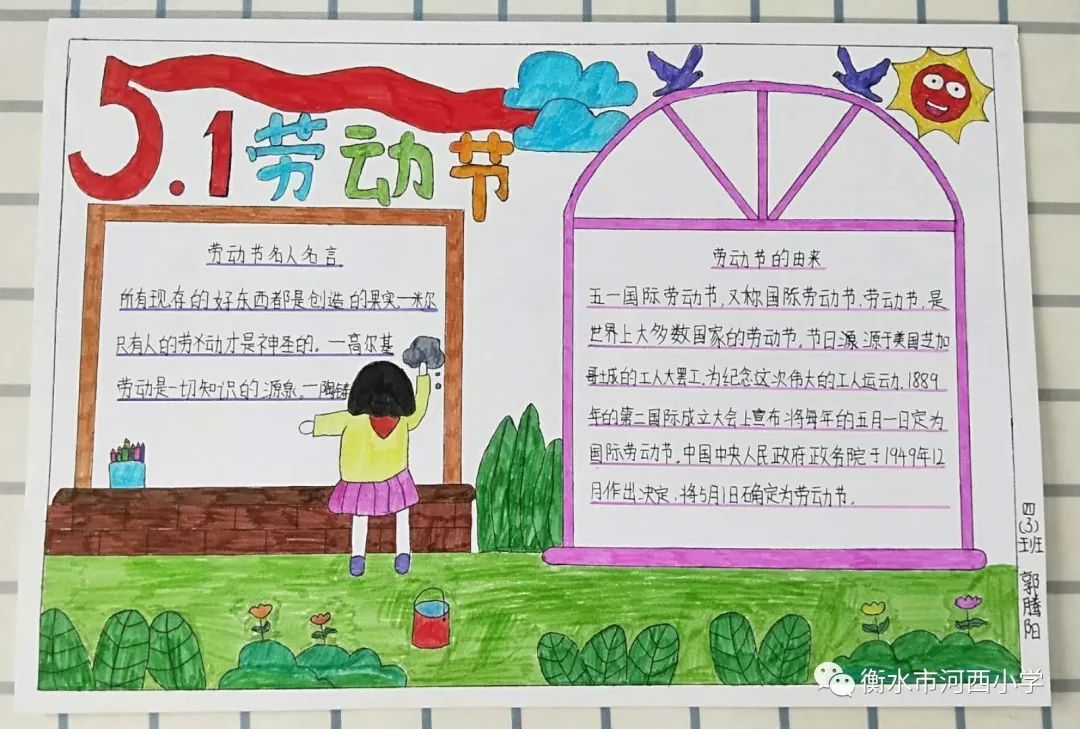 5.1劳动节
劳动节名人名言
所有现存的好东西都是创造的果实一米尔
只有人的劳动才是神圣的。一高尔基
劳动是一切知识的源泉。一陶铸
劳动节的由来
五一国际劳动节,又称国际劳动节、劳动节,是
世界上大多数国家的劳动节。节日源源于美国芝加
哥士成的工人大罢工,为纪念这次伟大的工人运动,1889
年的第二国际成立大会上宣布将每年的五月一日定为
国际劳动节。中国中央人民政府政务院于1949年12
月作出决定,将5月1日确定为劳动节。
四(3)班 郭腾阳
衡水市河西小学